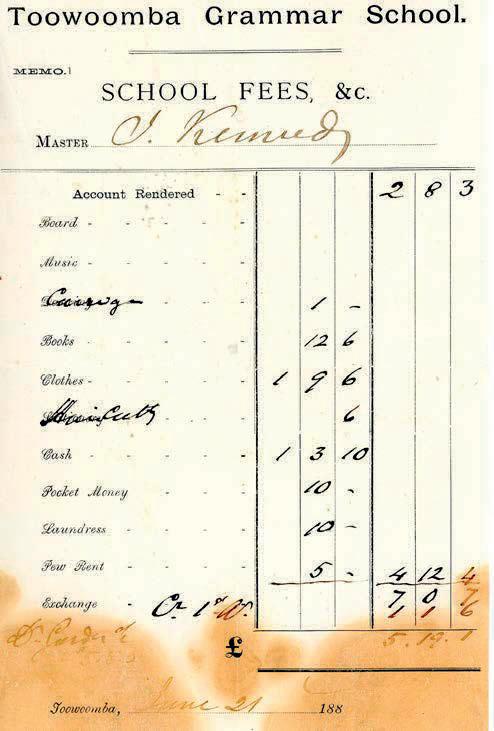 Toowoomba Grammar School.
MEMO.
SCHOOL FEES, &c.
MASTER J. Kennedy
Account Rendered - - 2 8 3
Board - - - - -
Music - - - - -
Carriage 1 -
Books - - - - - 12 6
Clothes - - - - - 1 9 6
Hair Cutt 6
Cash - - - - - 1 3 10
Pocket Money - - - - 10 -
Laundress - - - - 10 -
Pew Rent - - - - 5 - 4 12 4
7 0 7
Exchange - Cr 1 1 6
£ 5. 19. 1
Toowoomba, June 21 188